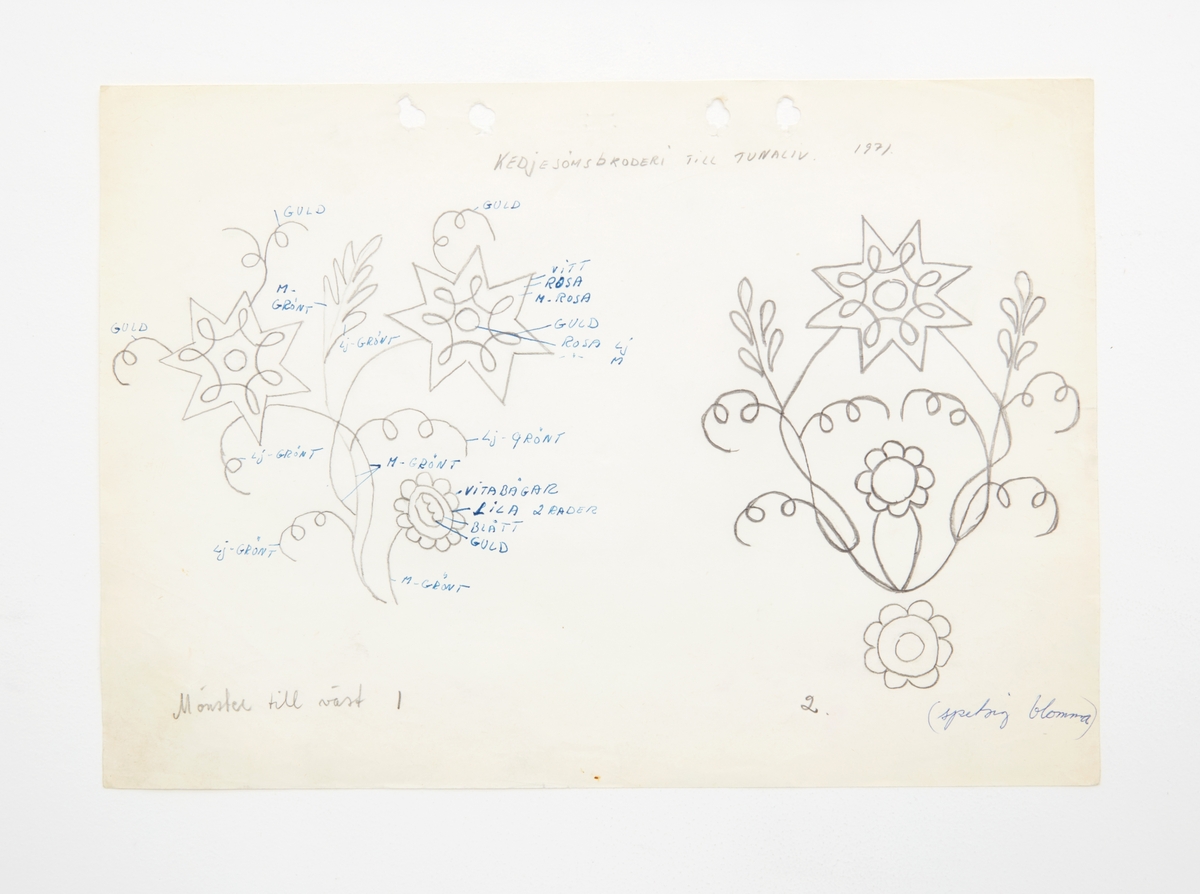 KEDJESÖMSBRODERI TILL TUNALIV. 1971.
GULD
GULD
VITT
ROSA
M-ROSA
M-
GRÖNT
GULD
GULD
Lj-GRÖNT
ROSA Lj
-"- M
Lj-GRÖNT
Lj-GRÖNT
M-GRÖNT
VITA BÅGAR
LILA 2 RADER
BLÅTT
GULD
Lj-GRÖNT
M-GRÖNT
Mönster till väst 1
2.
(spetsig blomma)